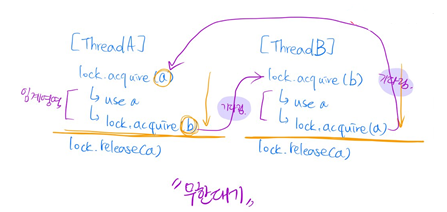 [ThreadA]
lock.acquire(a)
임계영역
↳ use a
↳ lock.acquire(b)
기다림
lock.release(a)
[ThreadB]
lock.acquire(b)
↳ use a
↳ lock.acquire(a)
기다림.
lock.release(a)
"무한대기"